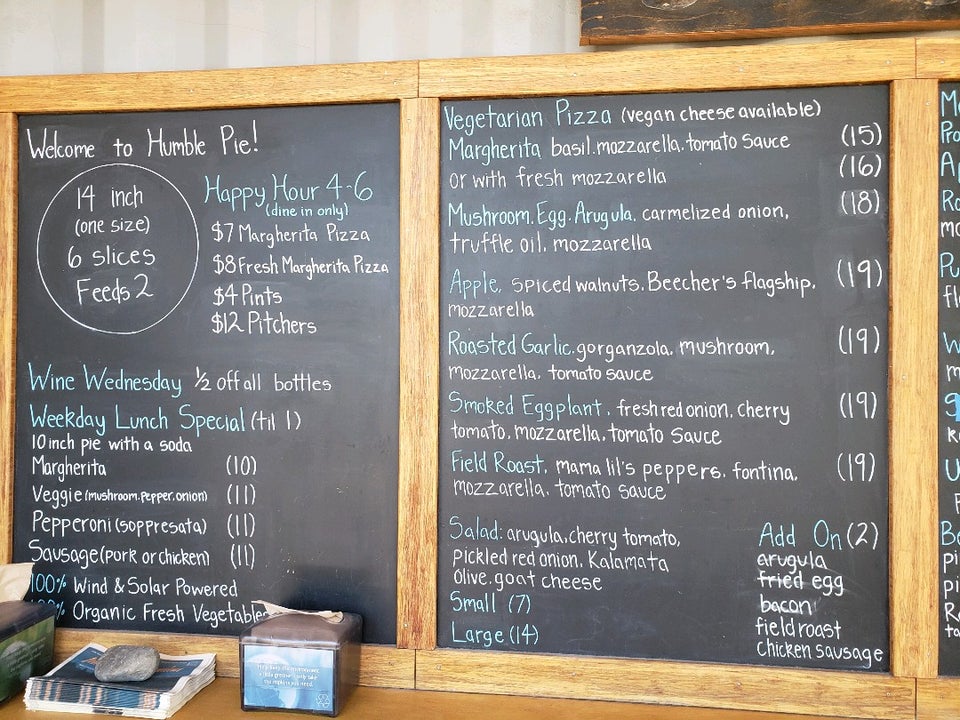 Welcome to Humble Pie!
14 inch
(one size)
6 slices
Feeds 2
Happy Hour 4-6
(dine in only)
$7 Margherita Pizza
$8 Fresh Margherita Pizza
$4 Pints
$12 Pitchers
Wine Wednesday ½ off all bottles
Weekday Lunch Special (til 1)
10 inch pie with a soda
Margherita (10)
Veggie (mushroom.pepper.onion) (11)
Pepperoni (soppresata) (11)
Sausage (pork or chicken) (11)
100% Wind & Solar Powered
Organic Fresh Vegetables
Vegetarian Pizza (vegan cheese available)
Margherita basil.mozzarella.tomato sauce (15)
or with fresh mozzarella (16)
Mushroom.Egg.Arugula. carmelized onion, (18)
truffle oil. mozzarella
Apple. spiced walnuts. Beecher's flagship. (19)
mozzarella
Roasted Garlic.gorganzola. mushroom, (19)
mozzarella. tomato sauce
Smoked Eggplant. fresh red onion. cherry (19)
tomato. mozzarella. tomato sauce
Field Roast. mama lil's peppers. fontina. (19)
mozzarella. tomato sauce
Salad: arugula.cherry tomato,
pickled red onion. Kalamata
Olive.goat cheese
Small (7)
Large (14)
Add On (2)
arugula
fried egg
bacon
field roast
chicken sausage